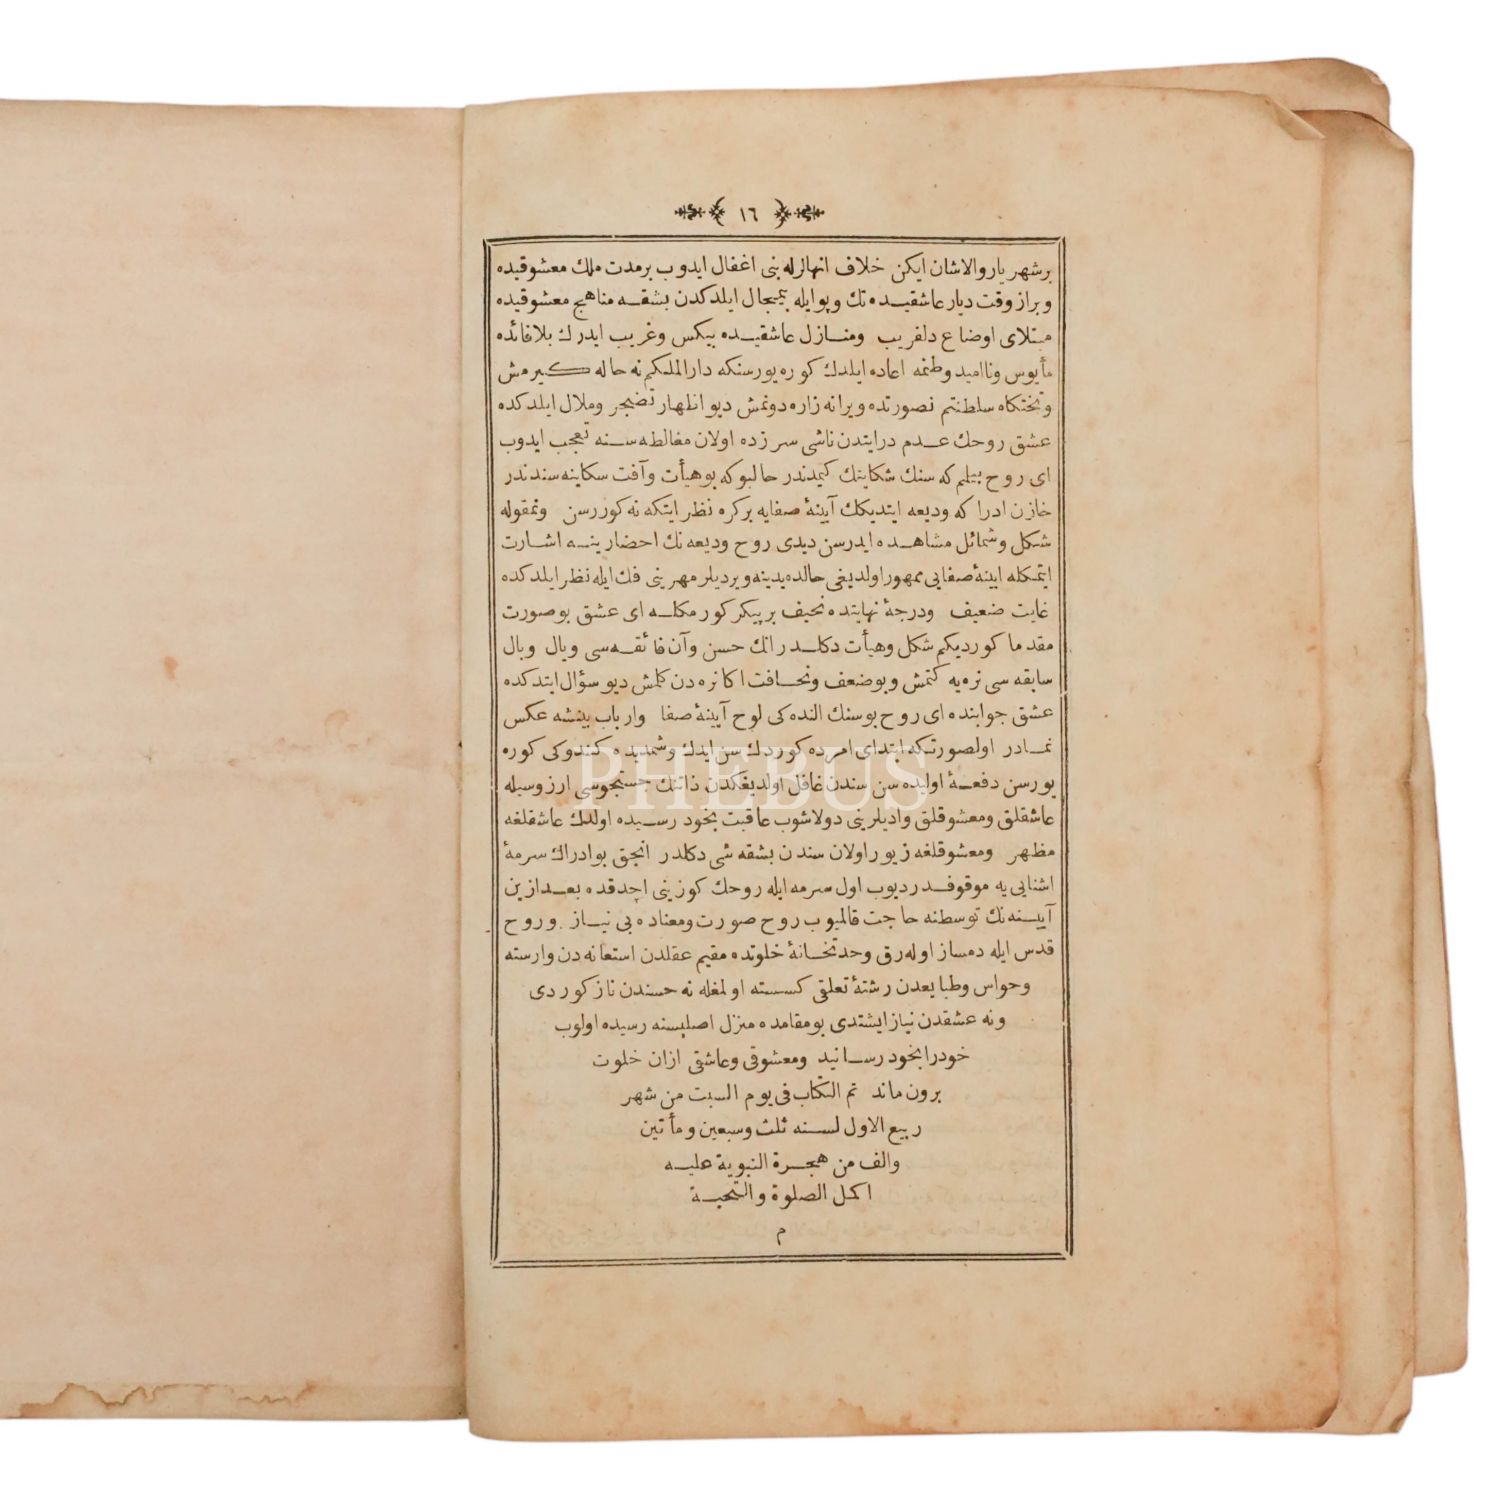 ١٦
بر شهریار والاشان ایکن خلاف انها ازله بنی اغفال ایدوب بر مدت ملك معشوقیده
و براز وقت دیار عاشقیده تك و پو ایله بیمجال ایلدکدن بشقه مناهج معشوقیده
مبتلای اوضاع دلفریب و منازل عاشقیده بیکس و غریب ایدرك بلا فائده
مأیوس و ناامید وطنمه اعاده ایلدك کوره یورسنکه دارالملکم نه حاله کیرمش
و تختکاه سلطنتم نصورتده ویرانه زاره دونمش دیو اظهار تضجر و ملال ایلدکده
عشق روحك عدم درایتدن ناشی سرزده اولان مغالطه سنه تعجب ایدوب
ای روح بیلم که سنك شکایتك کیمدندر حالبوکه بو هیأت و آفت سکاینه سندندر
خازن ادراکه ودیعه ایتدیکك آیینۀ صفایه بر کره نظر ایتکه نه کوررسن و نمقوله
شکل و شمائل مشاهده ایدرسن دیدی روح ودیعه نك احضارینه اشارت
ایتمکله ایینۀ صفایی ممهور اولدیغی حالده یدینه ویردیلر مهرینی فك ایله نظر ایلدکده
غایت ضعیف و درجۀ نهایتده نحیف بر پیکر کورمکله ای عشق بو صورت
مقدما کوردیکم شکل و هیأت دکلدر انك حسن و آن فائقه سی و یال و بال
سابقه سی نره یه کتمش و بو ضعف و نحافت اکا نره دن کلمش دیو سؤال ایتدکده
عشق جوابنده ای روح بو سنك النده کی لوح آیینۀ صفا و ارباب بینشه عکس
نمادر اولصورتکه ابتدای امرده کوردك سن ایدك و شمدیده کندوکی کوره
یورسن دفعۀ اولیده سن سندن غافل اولدیغکدن ذاتنك جستجوسی ارزوسیله
عاشقلق و معشوقلق وادیلرینی دولاشوب عاقبت بخود رسیده اولدك عاشقلغه
مظهر و معشوقلغه زیور اولان سندن بشقه شی دکلدر انجق بو ادراك سرمۀ
اشنایی یه موقوفدر دیوب اول سرمه ایله روحك کوزینی اچدقده بعد ازین
آیینه نك توسطنه حاجت قالمیوب روح صورت و معناده بی نیاز و روح
قدس ایله دمساز اوله رق وحدتخانۀ خلوتده مقیم عقلدن استعانه دن وارسته
و حواس و طبایعدن رشتۀ تعلقی کسسته اولمغله نه حسندن ناز کوردی
و نه عشقدن نیاز ایشتدی بو مقامده منزل اصلیسنه رسیده اولوب
خودرا بخود رسانید و معشوقی و عاشقی ازان خلوت
برون ماند تم الکتاب فی یوم السبت من شهر
ربیع الاول لسنه ثلث و سبعین و مأتین
والف من هجرة النبویة علیه
اکمل الصلوة والتحیة
م
PHEBUS